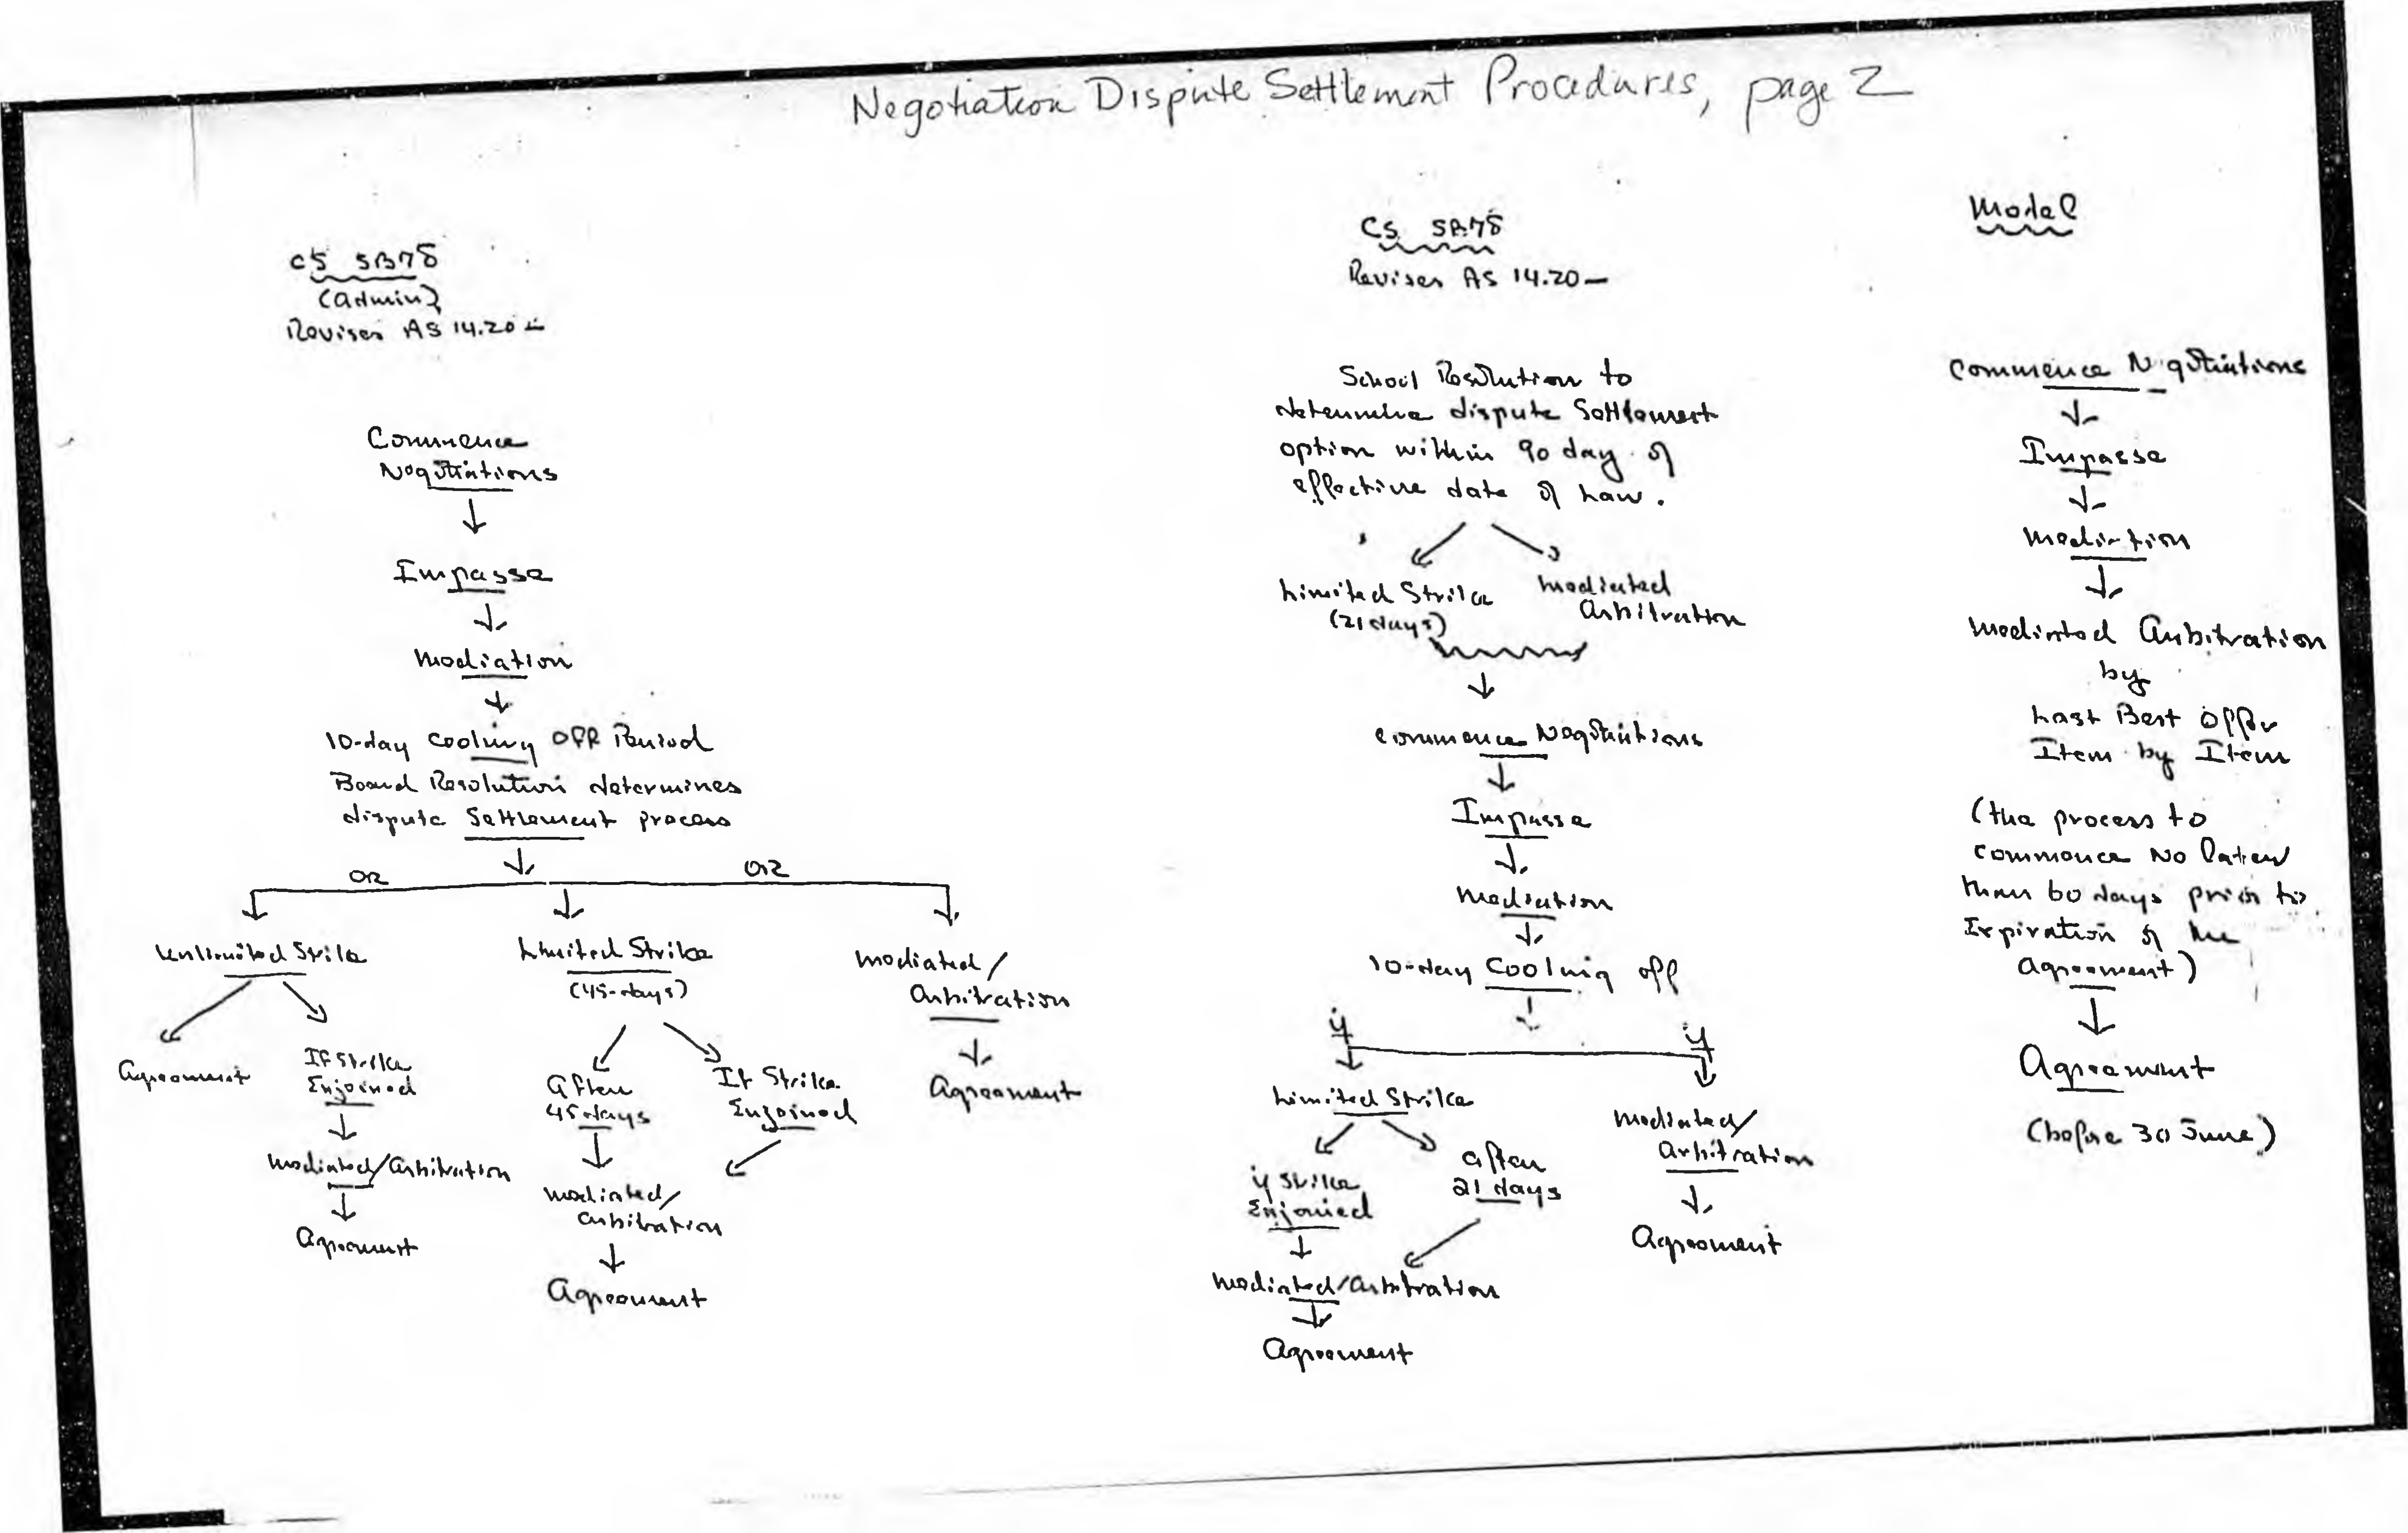 Negotiation Dispute Settlement Procedures, page 2
CS SB78
(admin)
Revises AS 14.20—
Commence
Negotiations
Impasse
Mediation
10-day Cooling Off Period
Board Resolution determines
dispute Settlement process
OR
OR
Unlimited Strike
Agreement
If Strike
Enjoined
Mediated/Arbitration
Agreement
Limited Strike
(45-days)
After
45 days
If Strike
Enjoined
Mediated/
Arbitration
Agreement
Mediated/
Arbitration
Agreement
CS SB78
Revises AS 14.20—
School Resolution to
determine dispute Settlement
option within 90 day of
effective date of Law.
Limited Strike
(21 days)
Mediated
Arbitration
Commence Negotiations
Impasse
Mediation
10-day Cooling off
if
if
Limited Strike
if Strike
Enjoined
after
21 days
Mediated/Arbitration
Agreement
Mediated/
Arbitration
Agreement
Model
Commence Negotiations
Impasse
Mediation
Mediated Arbitration
by
Last Best Offer
Item by Item
(the process to
commence No later
than 60 days prior to
Expiration of the
agreement)
Agreement
(before 30 June)